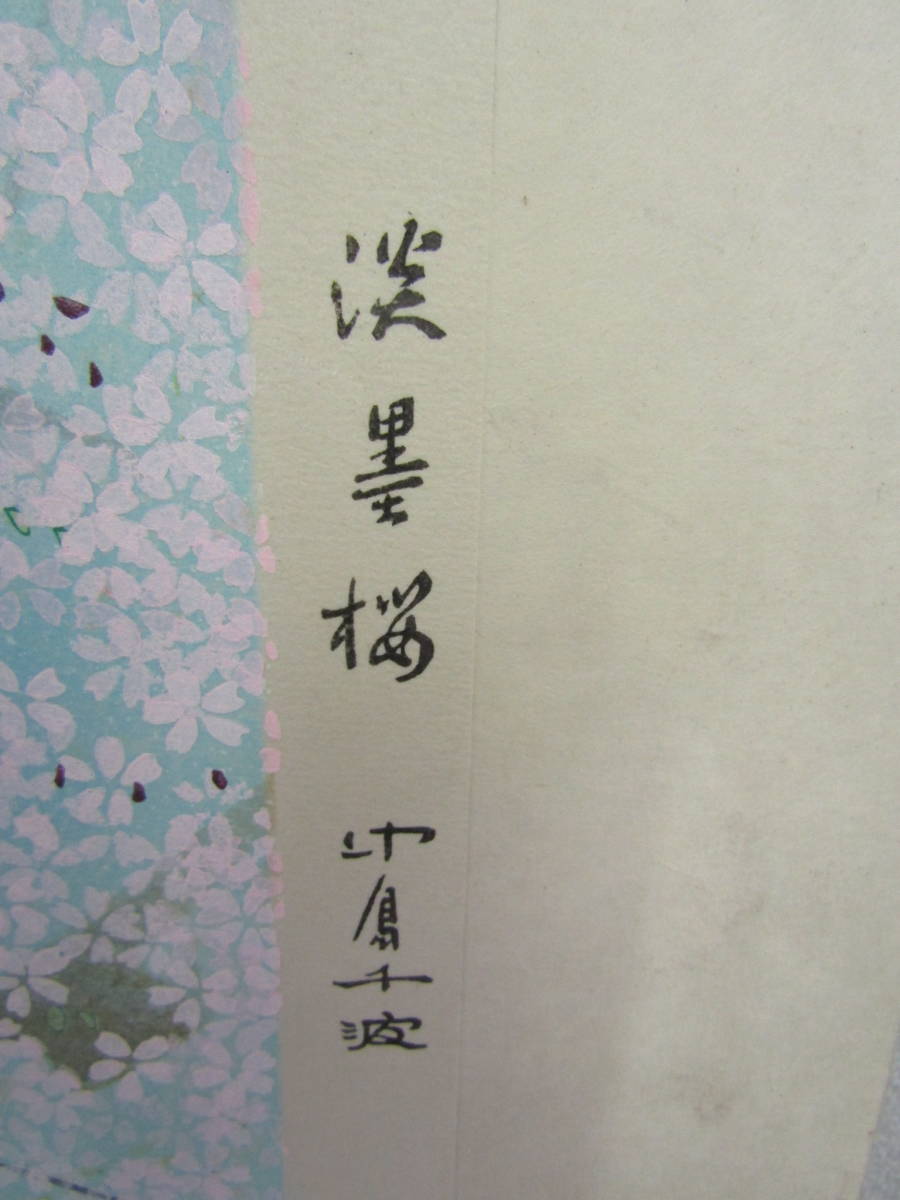 淡墨桜 中島千波